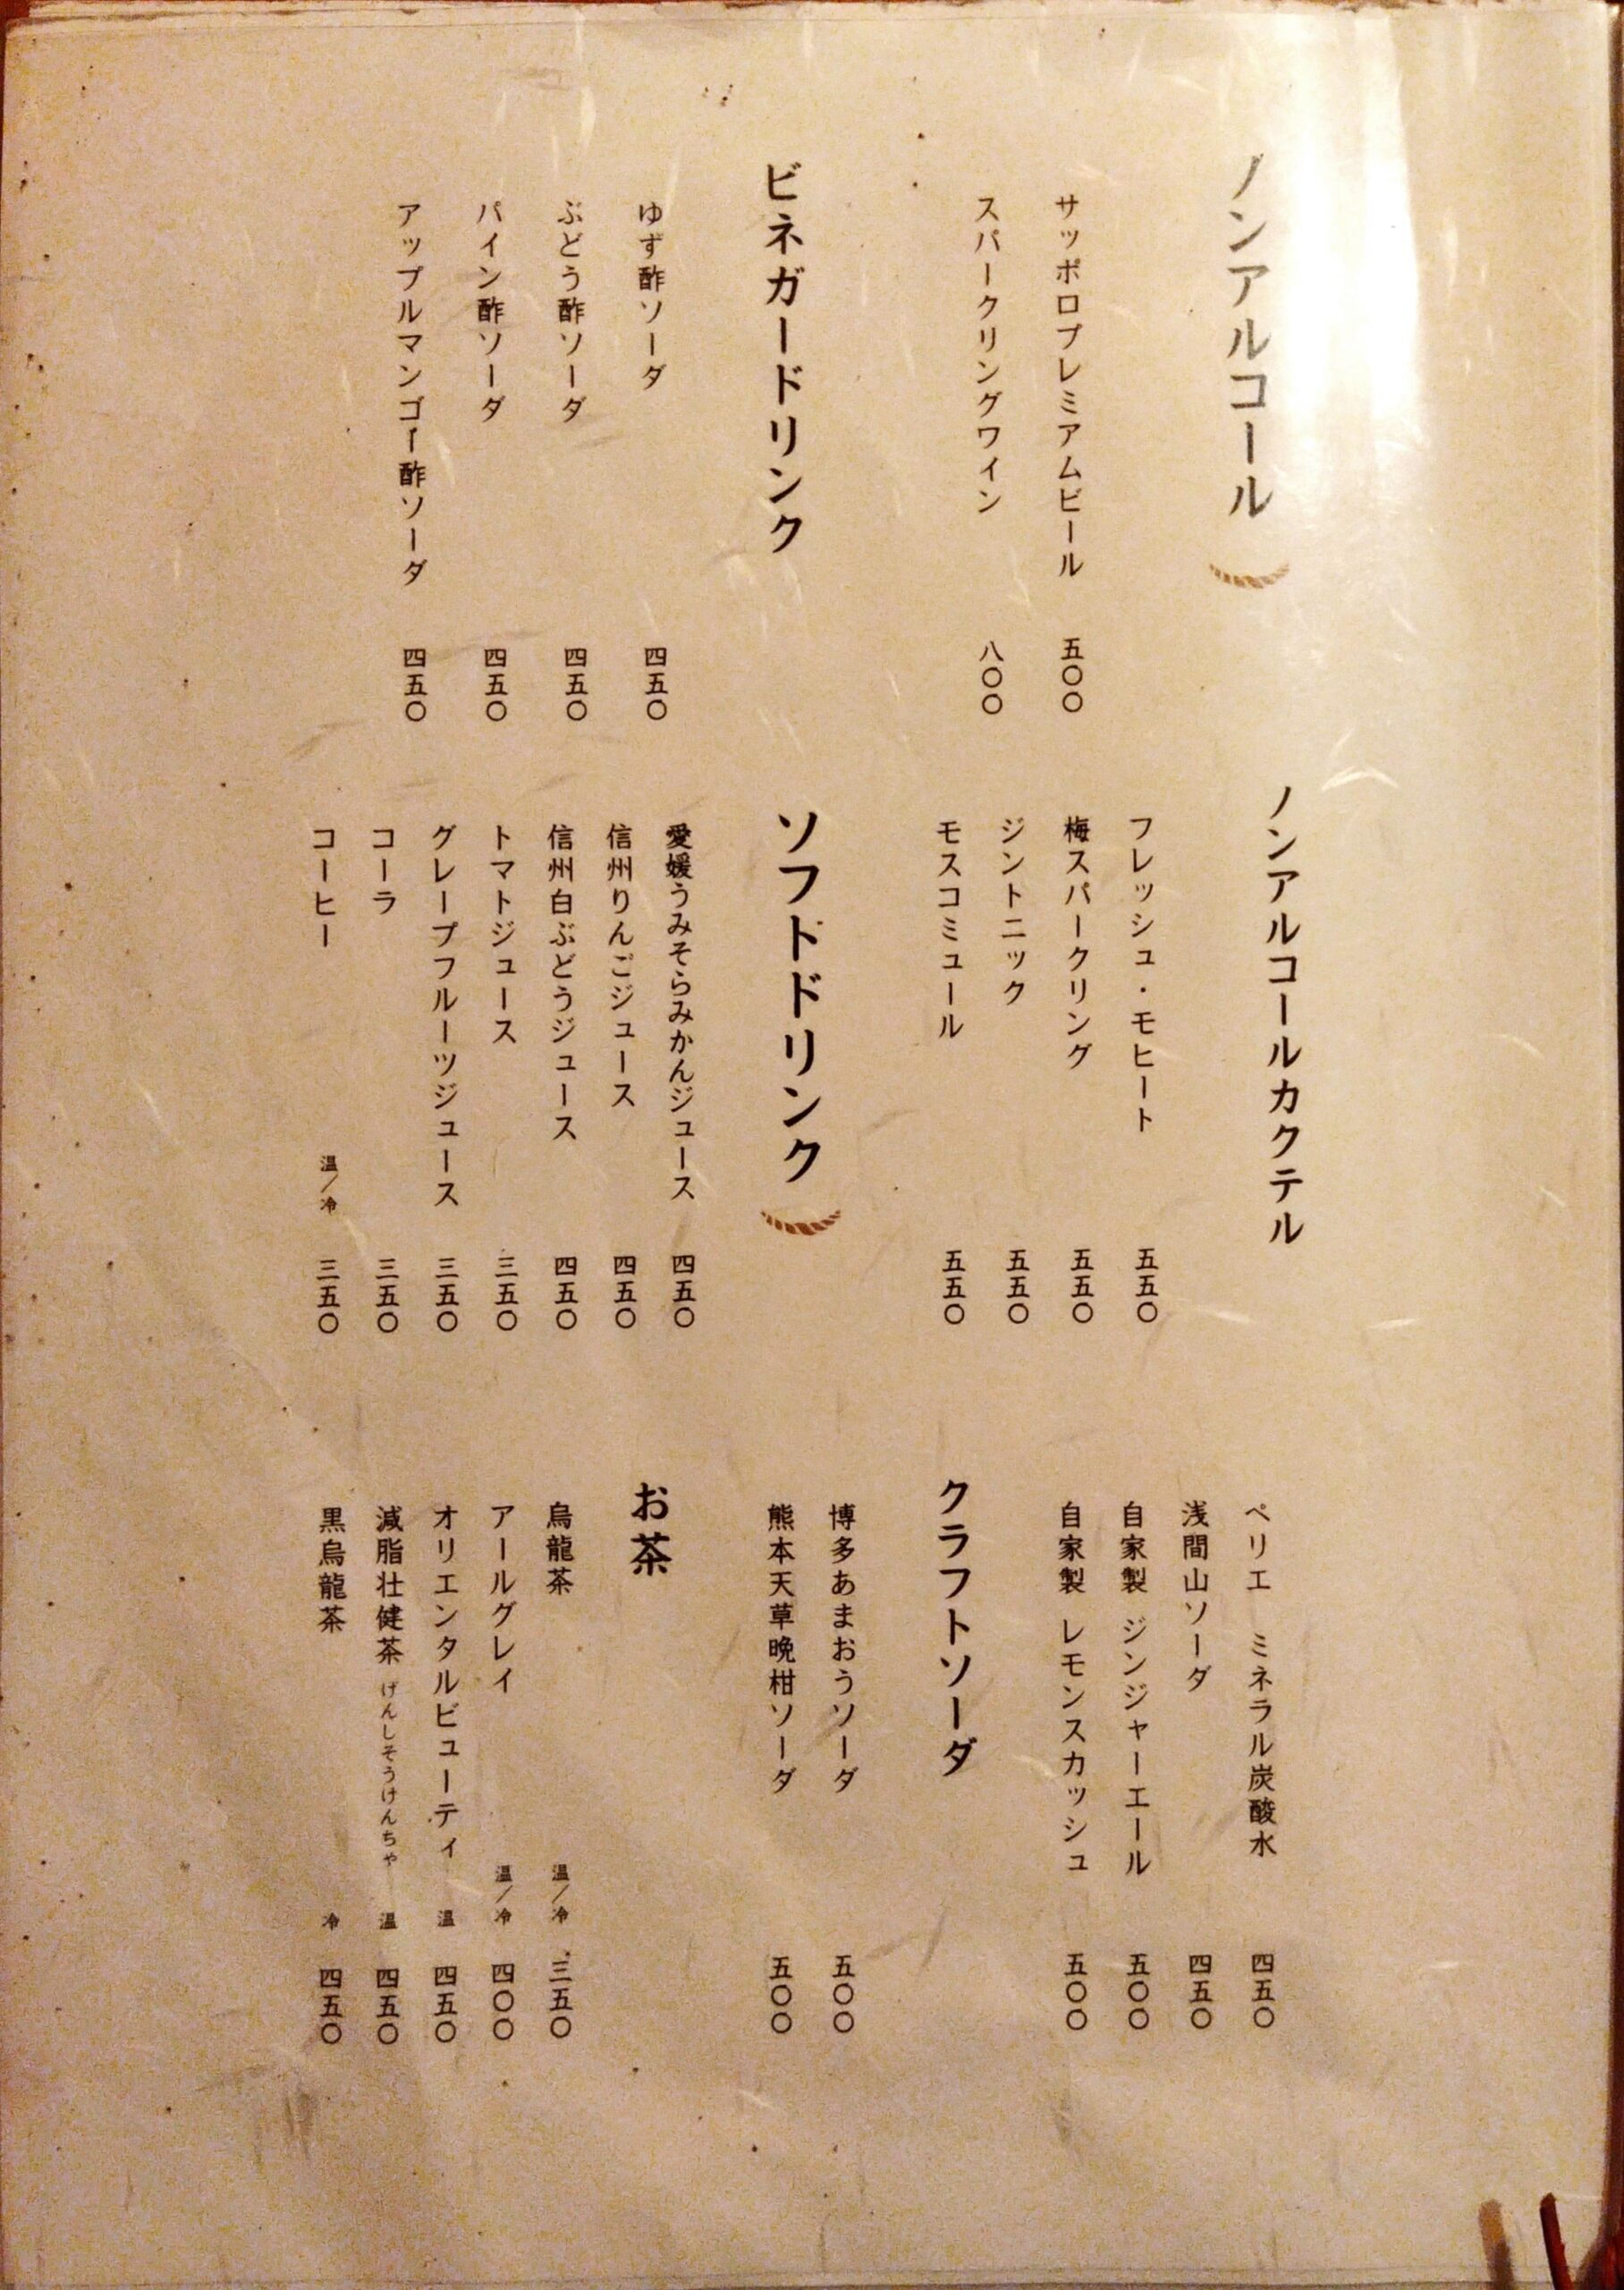 ノンアルコール
サッポロプレミアムビール 五〇〇
スパークリングワイン 八〇〇
ビネガードリンク
ゆず酢ソーダ 四五〇
ぶどう酢ソーダ 四五〇
パイン酢ソーダ 四五〇
アップルマンゴー酢ソーダ 四五〇
ノンアルコールカクテル
フレッシュ・モヒート 五五〇
梅スパークリング 五五〇
ジントニック 五五〇
モスコミュール 五五〇
ソフトドリンク
愛媛うみそらみかんジュース 四五〇
信州りんごジュース 四五〇
信州白ぶどうジュース 四五〇
トマトジュース 三五〇
グレープフルーツジュース 三五〇
コーラ 三五〇
コーヒー 温/冷 三五〇
ペリエ ミネラル炭酸水 四五〇
浅間山ソーダ 四五〇
自家製 ジンジャーエール 五〇〇
自家製 レモンスカッシュ 五〇〇
クラフトソーダ
博多あまおうソーダ 五〇〇
熊本天草晩柑ソーダ 五〇〇
お茶
烏龍茶 温/冷 三五〇
アールグレイ 温/冷 四〇〇
オリエンタルビューティ 温 四五〇
減脂壮健茶 げんしそうけんちゃ 温 四五〇
黒烏龍茶 冷 四五〇